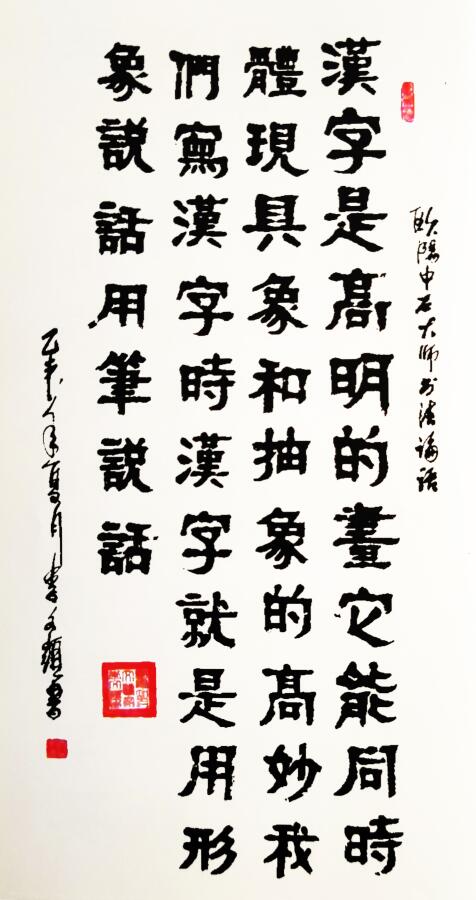 歐陽中石大师书法論語
漢字是髙明的畫它能同時
體現具象和抽象的髙妙我
們寫漢字時漢字就是用形
象説話用筆説話
乙未年夏月李文書